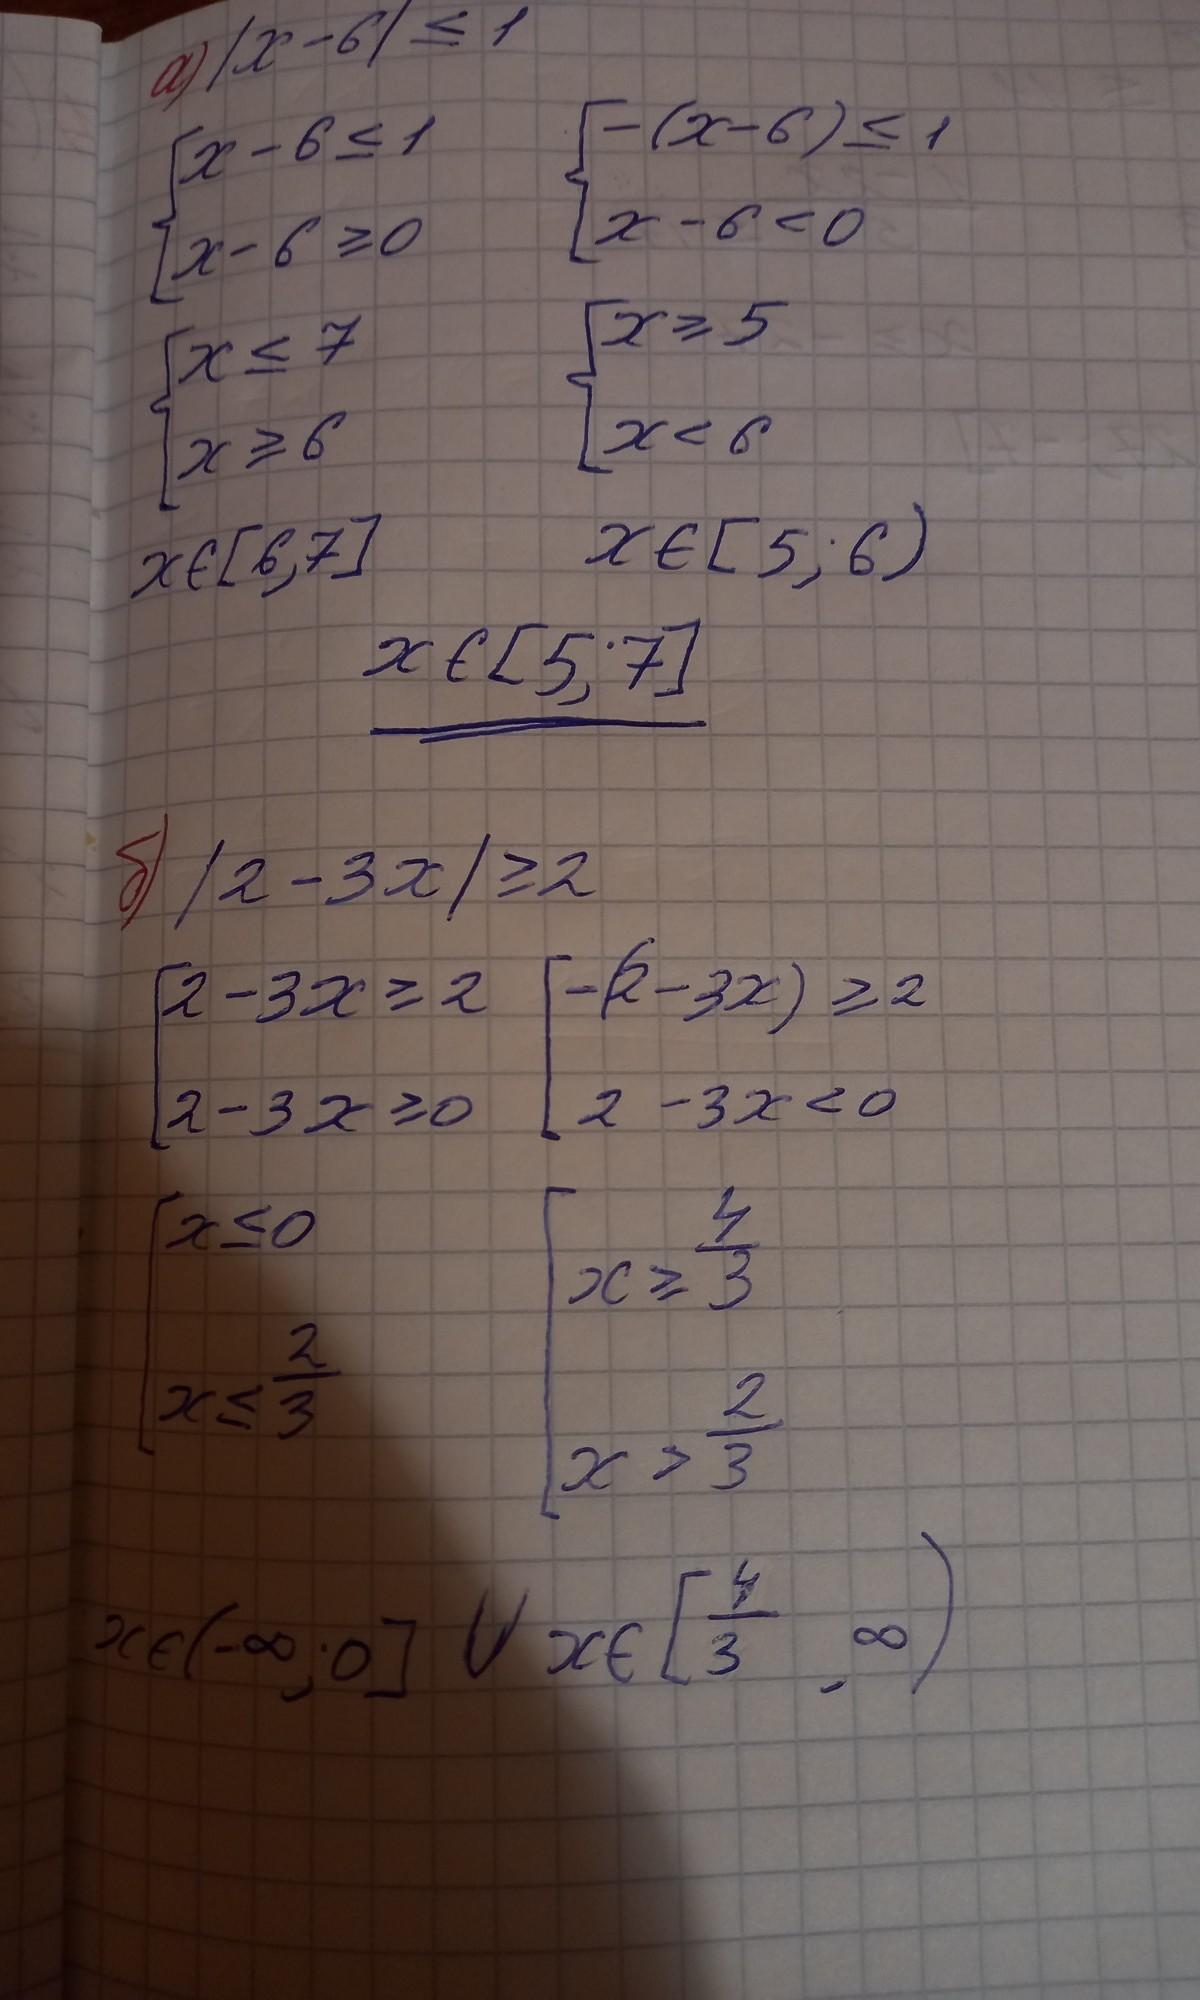 а) |x - 6| ≤ 1
{ x - 6 ≤ 1 { -(x - 6) ≤ 1
x - 6 ≥ 0 x - 6 < 0
{ x ≤ 7 { x ≥ 5
x ≥ 6 x < 6
x ∈ [6, 7] x ∈ [5; 6)
x ∈ [5; 7]
б) |2 - 3x| ≥ 2
[ 2 - 3x ≥ 2 [ -(2 - 3x) ≥ 2
2 - 3x ≥ 0 2 - 3x < 0
[ x ≤ 0 [ x ≥ 4/3
x ≤ 2/3 x > 2/3
x ∈ (-∞; 0] ∪ x ∈ [4/3, ∞)